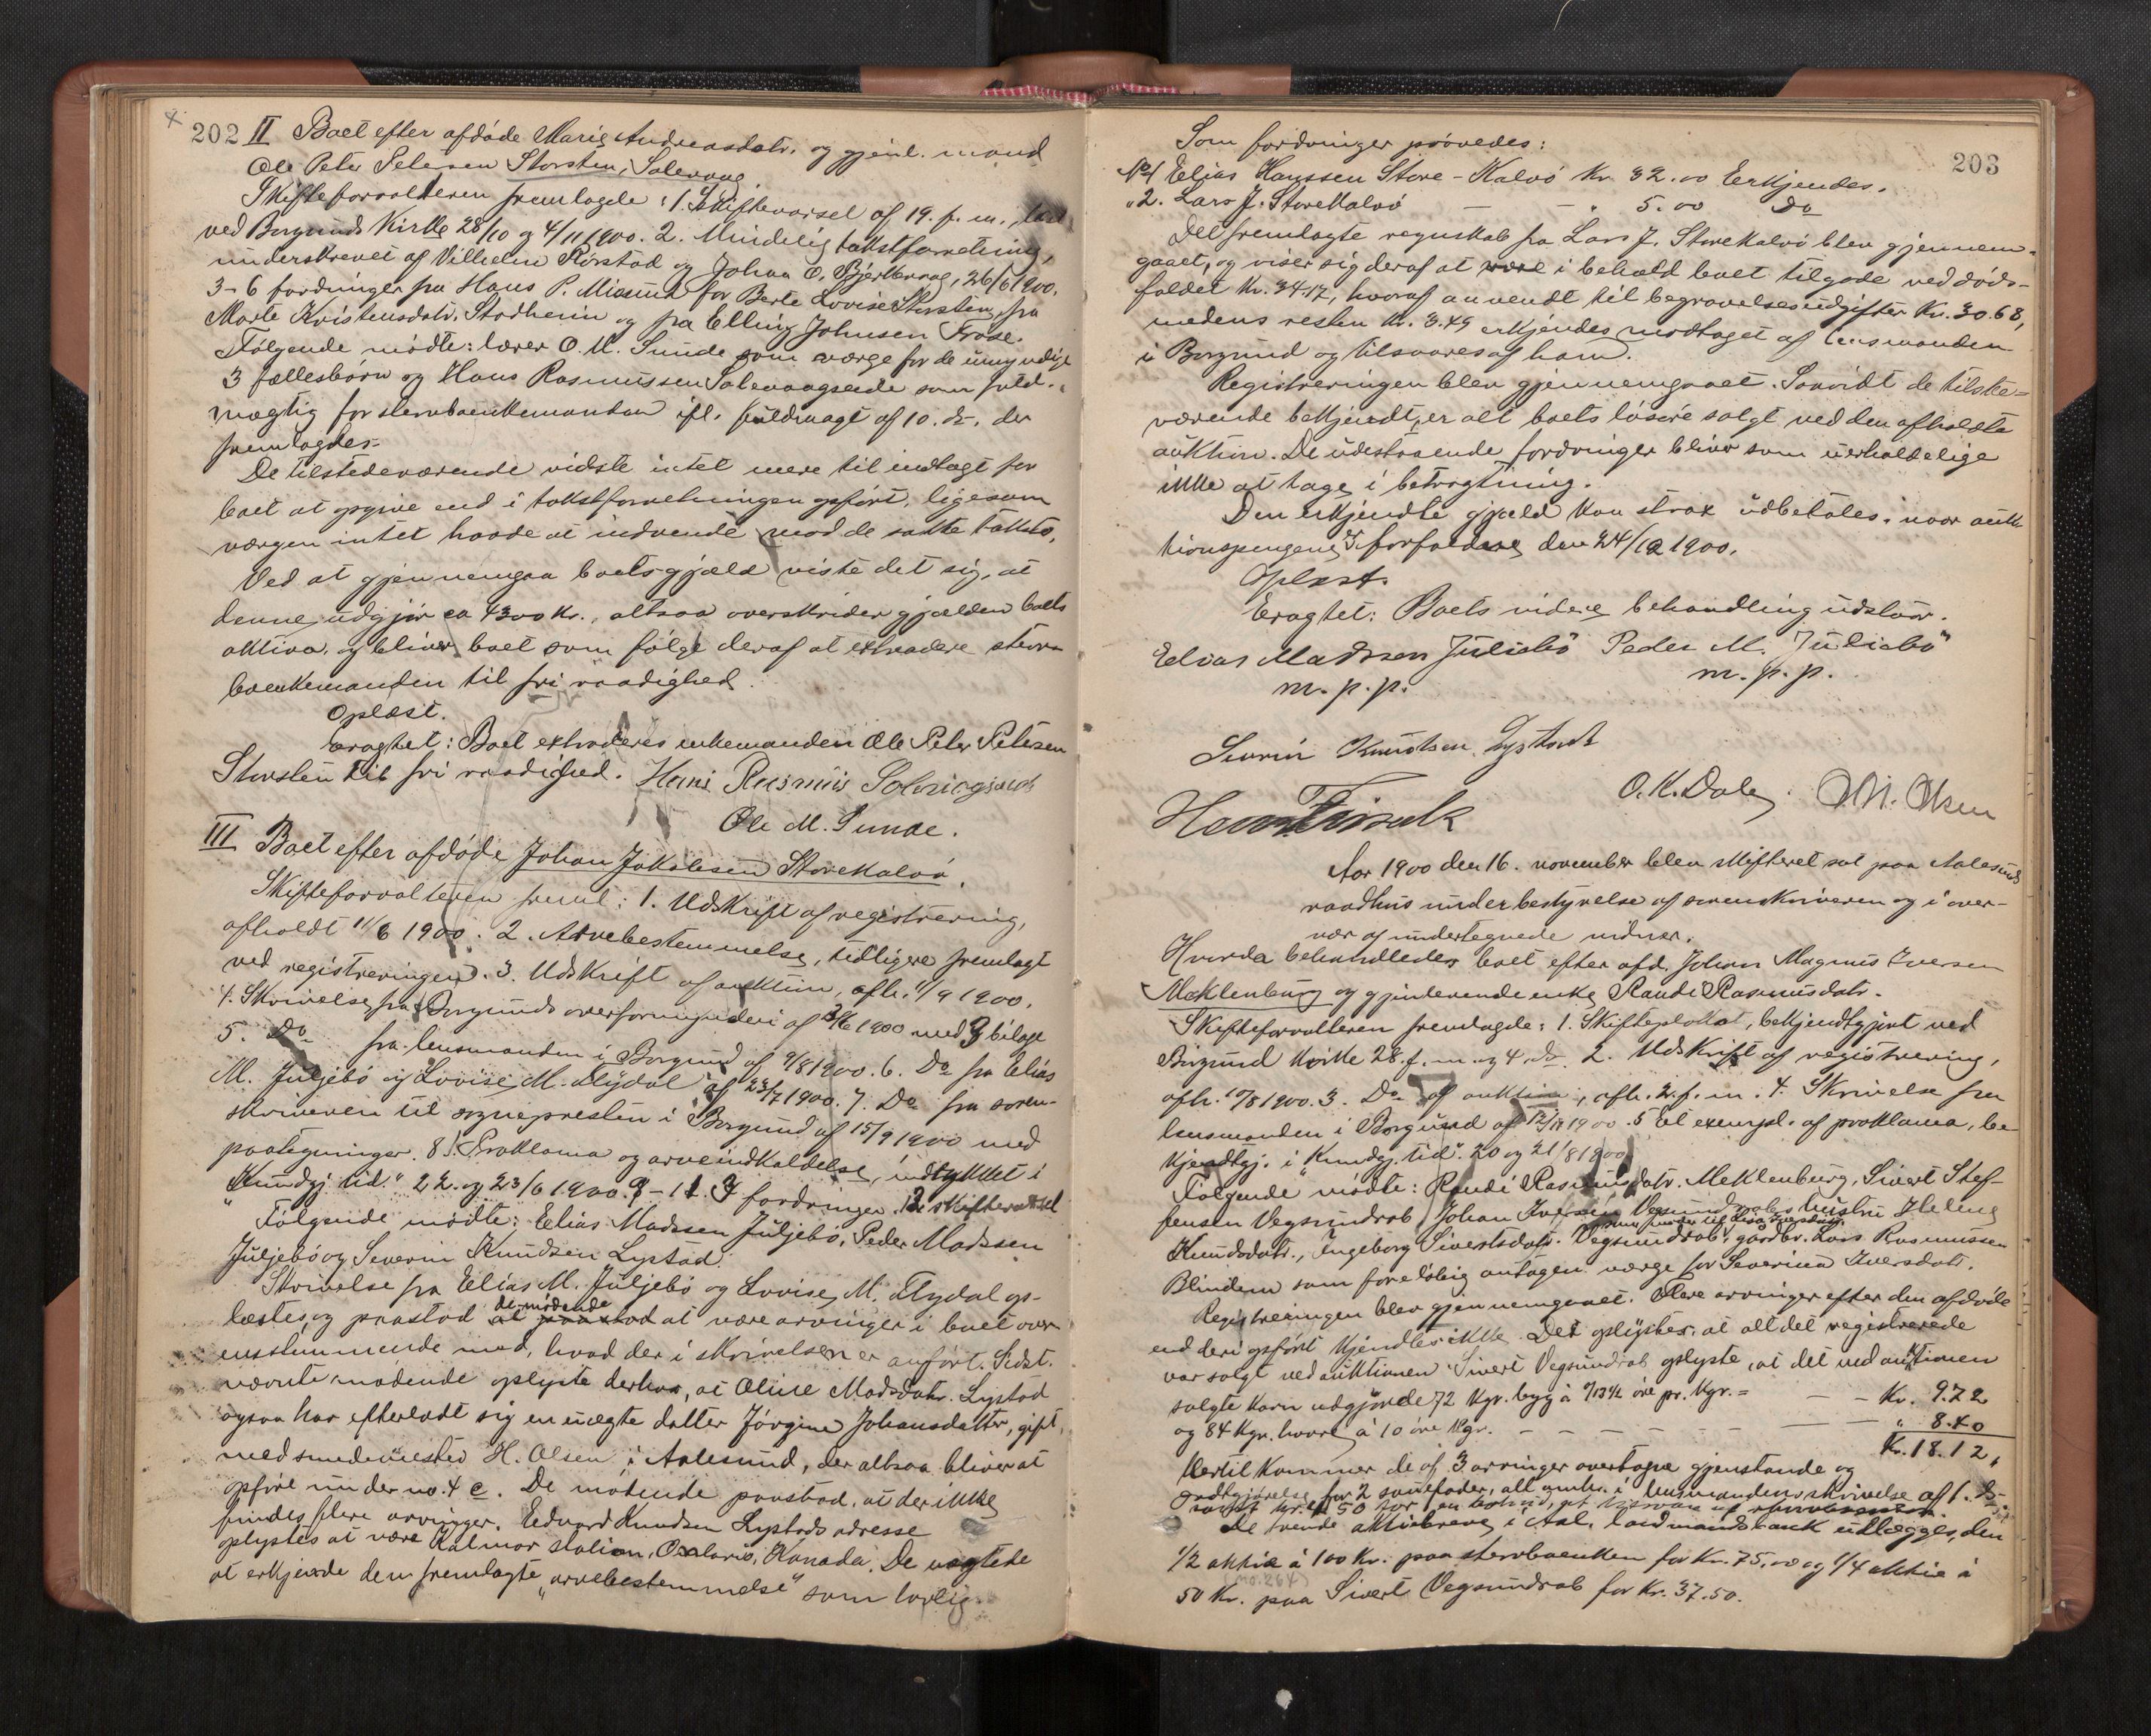 202 II Boet efter afdøde Marie Andreasdatr. og gjenl. mand
Ole Peter Petersen Storsten, Solevaag.
Skifteforvalteren fremlagde: 1. Skiftevarsel af 19. f. m.,
ved Borgunds Kirke 28/10 og 4/11 1900. 2. Mindelig takstforretning,
underskrevet af Vilhelm Rørstad og Johan O. Bjerkevaag, 26/6 1900.
3-6 fordringer fra Hans P. Misund for Berte Lovise Storsten, fra
Marte Kristensdatr. Stadheim og fra Elling Johnsen Frose.
Følgende mødte: lærer O. M. Sunde som værge for de umyndige
3 fællesbørn og Hans Rasmussen Solevaagseide som fuld-
mægtig for stervboenkemanden ifl. fuldmagt af 10. ds. der
fremlagdes.
De tilstedeværende vidste intet mere til indtægt for
boet at opgive end i takstforretningen opført, ligesom
værgen intet havde at indvende mod de satte takster.
Ved at gjennemgaa boets gjæld viste det sig, at
denne udgjør ca 4300 Kr., altsaa overskrider gjælden boets
aktiva. og bliver boet som følge deraf at extradere stervbo-
boenkemanden til fri raadighed.
Oplæst.
Eragtet: Boet extraderes enkemanden Ole Peter Petersen
Storsten til fri raadighed. Hans Rasmus Solevaagseide
Ole M. Sunde.
III Boet efter afdøde Johan Jakobsen StoreKalvø.
Skifteforvalteren freml: 1. Udskrift af registrering,
afholdt 11/6 1900. 2. Arvebestemmelse, tidligere fremlagt
ved registreringen. 3. Udskrift af auktion, afh. 1/9 1900.
4. Skrivelse fra Borgunds overformynderi af 1900 med 3 bilage
5. Do fra lensmanden i Borgund af 9/8 1900. 6. Do fra Elias
M. Juljebø og Lovise M. Flydal af 23/7 1900. 7. Do fra soren-
skriveren til sognepresten i Borgund af 15/9 1900 med
paategninger. 8. Proklama og arveindkaldelse, indrykket i
"Kundgj. tid." 22. og 23/6 1900. 9-11. 3 fordringer. 12 skiftevarsel
Følgende mødte: Elias Madssen Juljebø, Peder Madssen
Juljebø og Severin Knudsen Lystad.
Skrivelse fra Elias M. Juljebø og Lovise M. Flydal op-
læstes, og paastod de mødende at være arvinger i boet over-
ensstemmende med, hvad der i skrivelsen er anført. Sidst-
nævnte mødende oplyste derhos, at Oline Madsdatr. Lystad
ogsaa har efterladt sig en uægte datter Jørgine Johansdatter, gift
med smedmester H. Olsen i Aalesund, der altsaa bliver at
opføre under no. 4 c. De mødende paastod, at der ikke
findes flere arvinger. Edvard Knudsen Lystads adresse
oplystes at være Kalmar station, Ontario, Kanada. De vægtede
at erkjende den fremlagte "arvebestemmelse" som lovlig.
203
Som fordringer prøvedes:
No 1 Elias Hanssen Store-Kalvø Kr. 32.00 Erkjendes.
" 2. Lars J. StoreKalvø — — " 5.00 Do
Det fremlagte regnskab fra Lars J. StoreKalvø blev gjennem-
gaaet, og viser sig deraf at være i behold boet tilgode ved døds-
faldet Kr. 34.17, hvoraf anvendt til begravelsesudgifter Kr. 30.68,
medens resten Kr. 3.49 erkjendes modtaget af lensmanden
i Borgund og tilsvares af ham.
Registreringen blev gjennemgaaet. Saavidt de tilste-
værende bekjendt, er alt boets løsøre solgt ved den afholdte
auktion. De udestaaende fordringer bliver som uerholdelige
ikke at tage i betragtning.
Den erkjendte gjæld kan strax udbetales, naar auk-
tionspengene er forfaldne den 24/12 1900.
Oplæst.
Eragtet: Boets videre behandling udstaar.
Elias Madssen Juliebø Peder M. Juliebø
m. p. p. m. p. p.
Severin Knudtsen Lystad
O. K. Dale. M. Olsen
Aar 1900 den 16. november blev skifteret sat paa Aalesunds
raadhus under bestyrelse af sorenskriveren og i over-
vær af undertegnede vidner.
Hvorda behandledes boet efter afd. Johan Magnus Iversen
Meklenburg og gjenlevende enke Randi Rasmusdatr.
Skifteforvalteren fremlagde: 1. Skifteplakat, bekjendtgjort ved
Borgund kirke 28. f. m. og 4. ds. 2. Udskrift af registrering,
afh. 10/8 1900. 3. Do af auktion, afh. 2. f. m. 4. Skrivelse fra
lensmanden i Borgund af 1900. 5 Et exempl. af proklama, be-
kjendtgj. i "Kundgj. tid". 20 og 21/8 1900.
Følgende mødte: Randi Rasmusdatr. Meklenburg, Sivert Stef-
fensen Vegsundrab, Johan Iversen Vegsundrabs hustru Heline
Knudsdatr., Ingeborg Sivertsdatr. Vegsundrab, gardbr. Lars Rasmussen
Blindem som foreløbig antagen værge for Severina Iversdatr.
Registreringen blev gjennemgaaet. Flere arvinger efter den afdøde
end deri opført kjendtes ikke. Det oplystes, at alt det registrerede
var solgt ved auktionen. Sivert Vegsundrab oplyste, at det ved auktionen
solgte korn udgjorde 72 kgr. byg à 13½ øre pr. kgr. = — — Kr. 9.72
og 84 kgr. havre à 10 øre kgr. — — — — — — " 8.40
Kr. 18.12,
Hertil kommer de af 3 arvinger overtagne gjenstande og
godtgjørelse for 2 sauefoder, alt anm. i lensmandens skrivelse af 1. ds.
De tvende aktiebreve i Aal. landmandsbank udlægges, den
½ aktie à 100 Kr. paa stervboenken for Kr. 75,00 og ¼ aktie à
(no. 264)
50 Kr. paa Sivert Vegsundrab for Kr. 37.50.